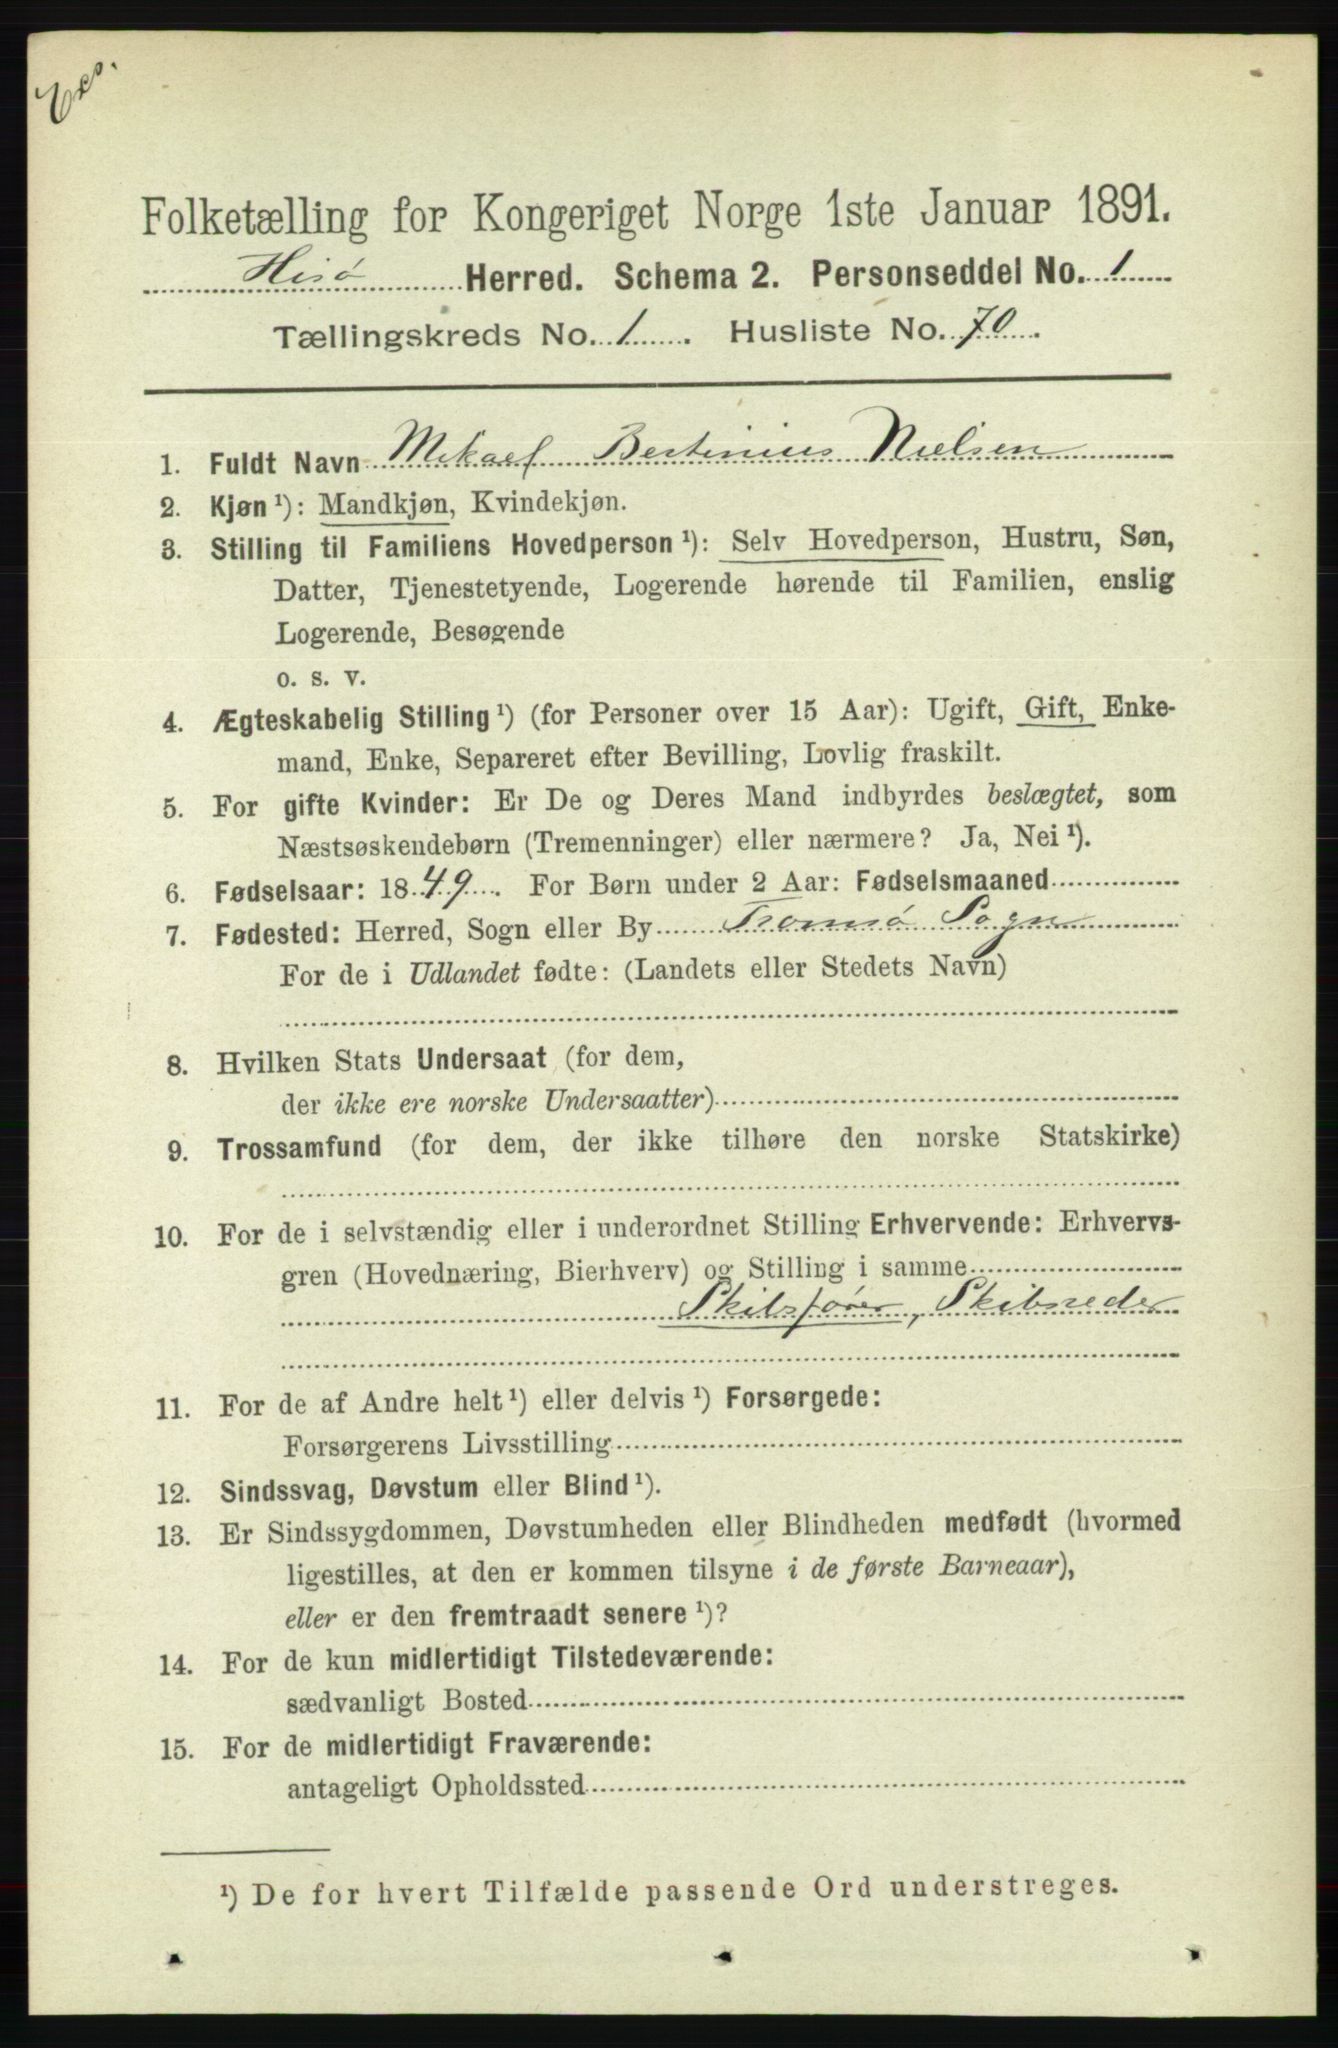 Folketælling for Kongeriget Norge 1ste Januar 1891.
Hisø Herred. Schema 2. Personseddel No. 1
Tællingskreds No. 1. Husliste No. 70.
1. Fuldt Navn Mikael Bertinius Nielsen
2. Kjøn ¹): Mandkjøn, Kvindekjøn.
3. Stilling til Familiens Hovedperson ¹): Selv Hovedperson, Hustru, Søn,
Datter, Tjenestetyende, Logerende hørende til Familien, enslig
Logerende, Besøgende
o. s. v.
4. Ægteskabelig Stilling ¹) (for Personer over 15 Aar): Ugift, Gift, Enke-
mand, Enke, Separeret efter Bevilling, Lovlig fraskilt.
5. For gifte Kvinder: Er De og Deres Mand indbyrdes beslægtet, som
Næstsøskendebørn (Tremenninger) eller nærmere? Ja, Nei ¹).
6. Fødselsaar: 1849. For Børn under 2 Aar: Fødselsmaaned
7. Fødested: Herred, Sogn eller By Tromsø Sogn
For de i Udlandet fødte: (Landets eller Stedets Navn)
8. Hvilken Stats Undersaat (for dem,
der ikke ere norske Undersaatter)
9. Trossamfund (for dem, der ikke tilhøre den norske Statskirke)
10. For de i selvstændig eller i underordnet Stilling Erhvervende: Erhvervs-
gren (Hovednæring, Bierhverv) og Stilling i samme
Skibsfører, Skibsreder
11. For de af Andre helt ¹) eller delvis ¹) Forsørgede:
Forsørgerens Livsstilling
12. Sindssvag, Døvstum eller Blind ¹).
13. Er Sindssygdommen, Døvstumheden eller Blindheden medfødt (hvormed
ligestilles, at den er kommen tilsyne i de første Barneaar),
eller er den fremtraadt senere ¹)?
14. For de kun midlertidigt Tilstedeværende:
sædvanligt Bosted
15. For de midlertidigt Fraværende:
antageligt Opholdssted
¹) De for hvert Tilfælde passende Ord understreges.